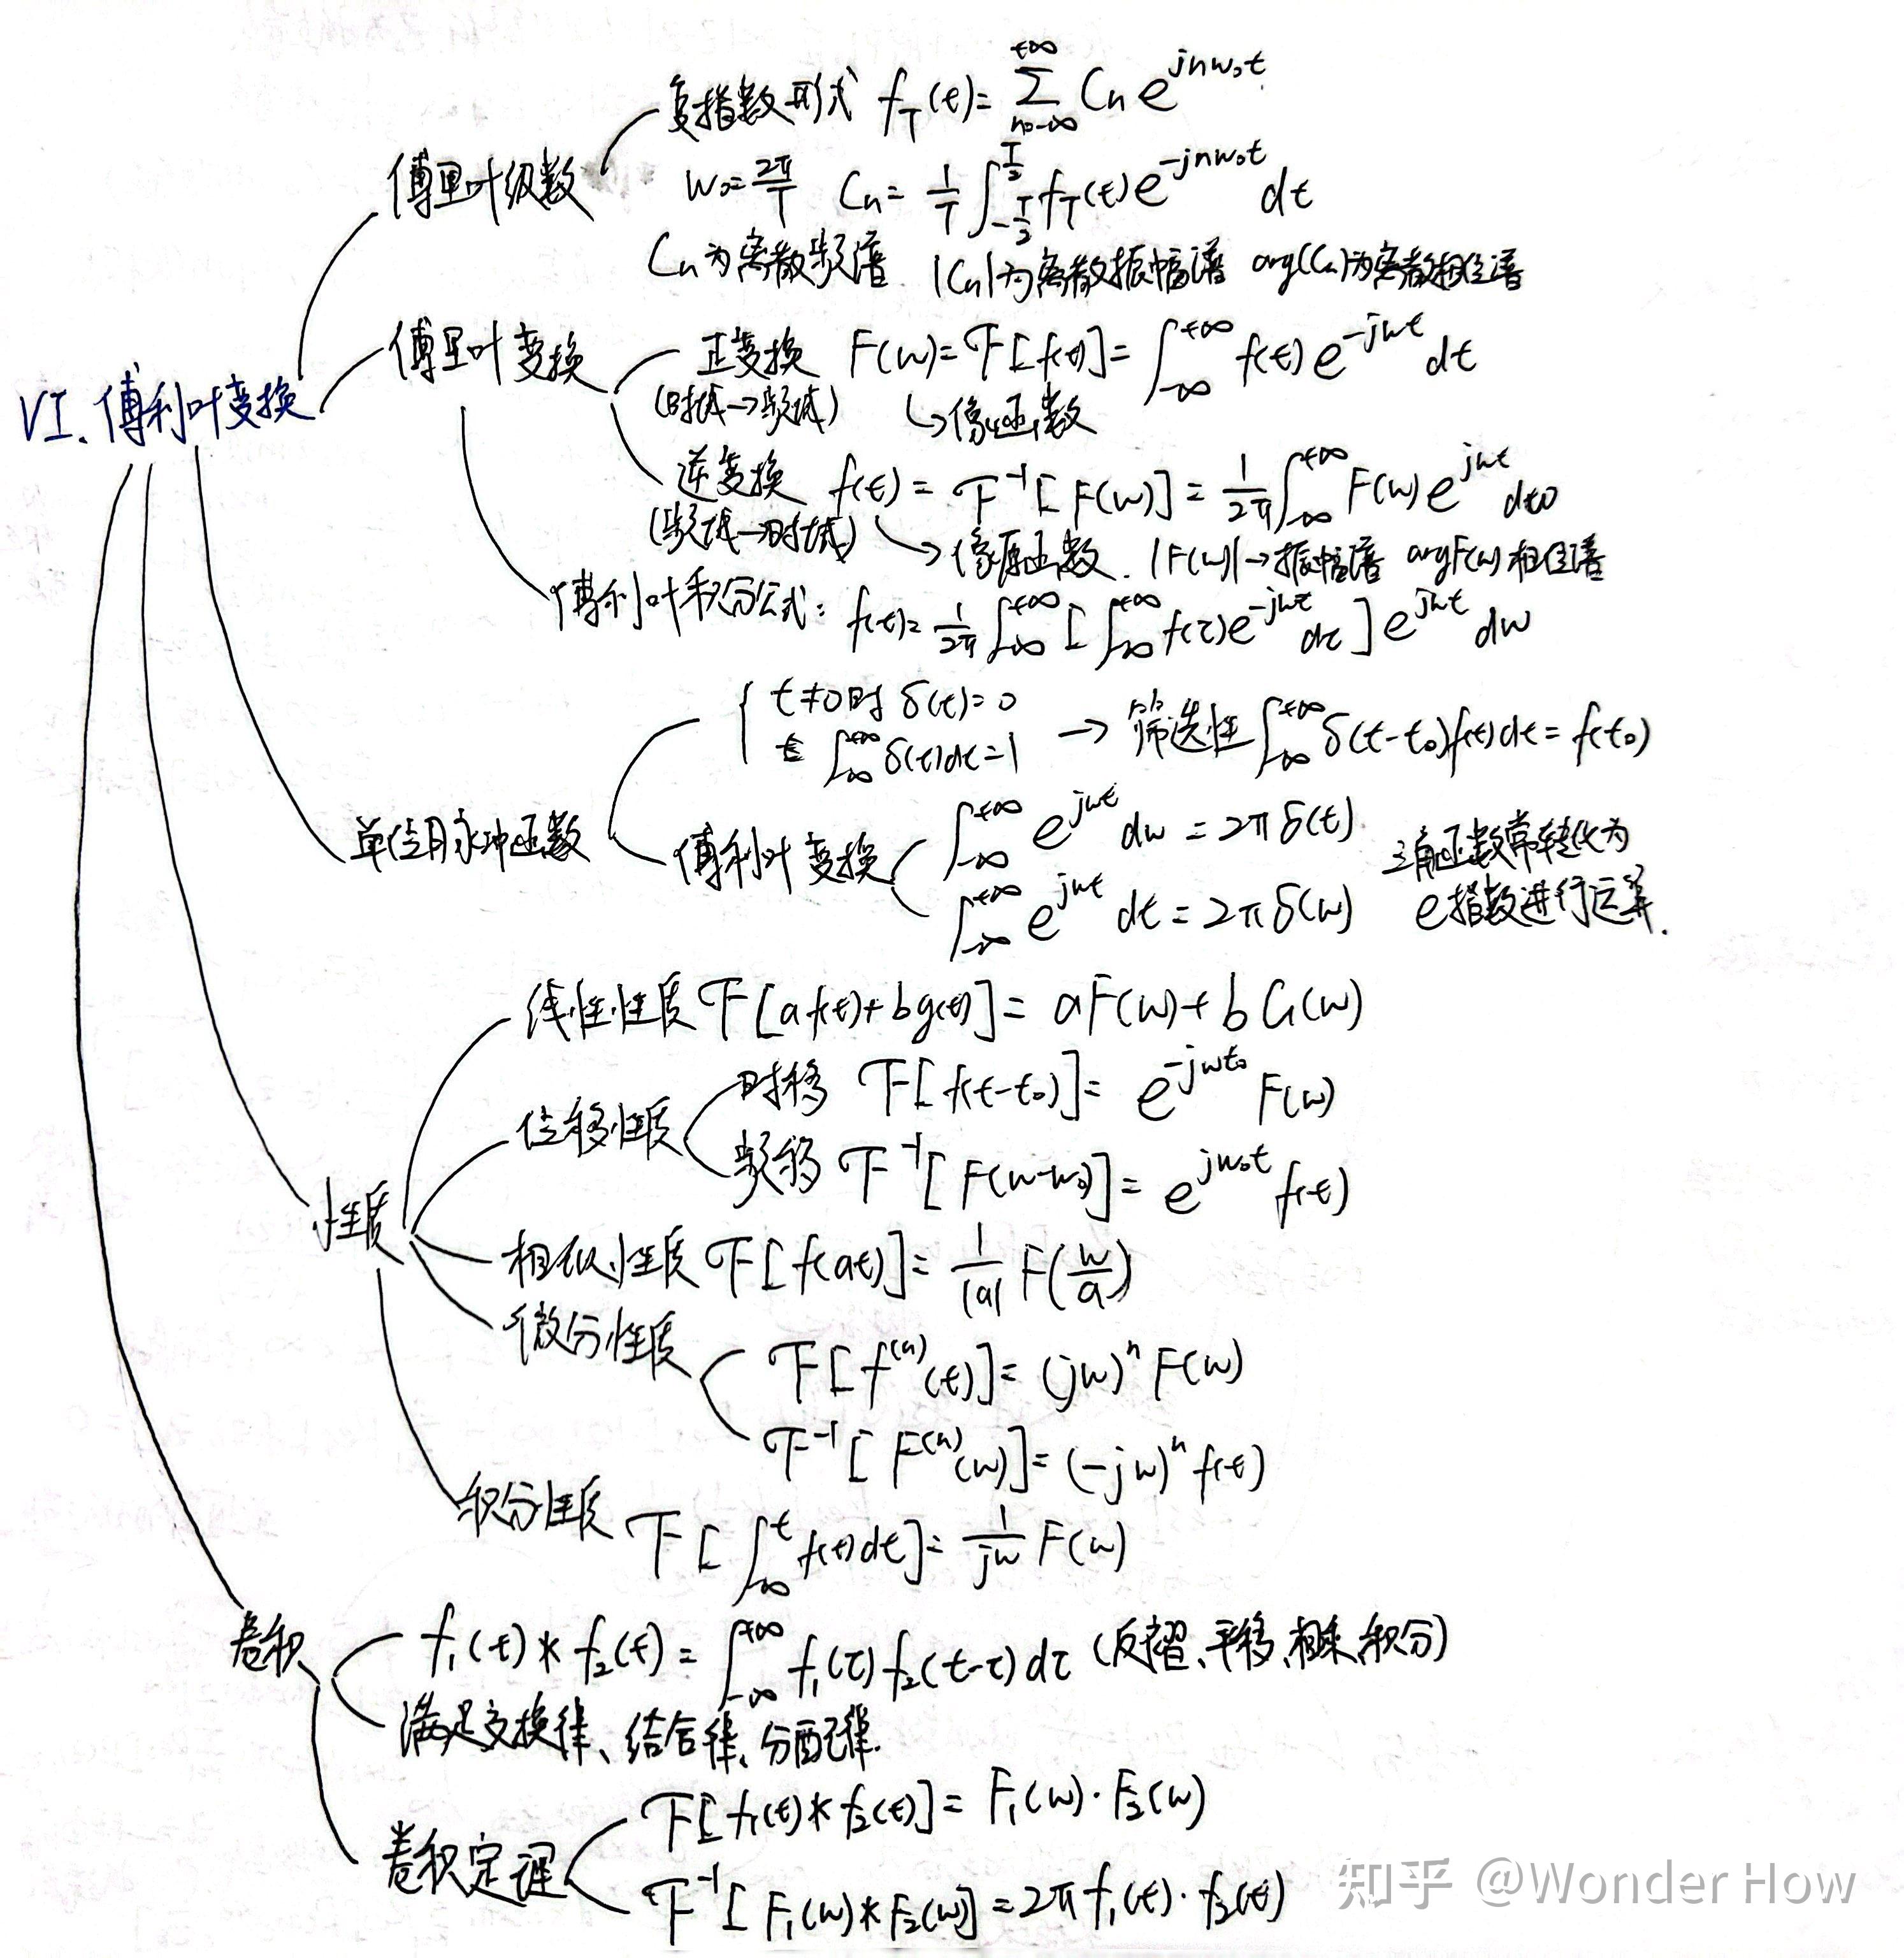 复指数形式 f_T(t)= ∑_{n=-∞}^{+∞} Cn e^{jnw₀t}
傅里叶级数
w₀=2π/T Cn= 1/T ∫_{-T/2}^{T/2} f_T(t)e^{-jnw₀t}dt
Cn为离散频谱. |Cn|为离散振幅谱 arg(Cn)为离散相位谱
VI.傅利叶变换
傅里叶变换
正变换 F(w)=F[f(t)]= ∫_{-∞}^{+∞} f(t)e^{-jwt}dt
(时域→频域) ↳像函数
逆变换 f(t)= F^{-1}[F(w)]= 1/2π ∫_{-∞}^{+∞} F(w)e^{jwt}dw
(频域→时域) ↳像原函数. |F(w)|→振幅谱 argF(w)相位谱
傅利叶积分公式: f(t)= 1/2π ∫_{-∞}^{+∞} [∫_{-∞}^{+∞} f(τ)e^{-jwτ}dτ]e^{jwt}dw
{ t≠0时 δ(t)=0
∫_{-∞}^{+∞} δ(t)dt=1 → 筛选性 ∫_{-∞}^{+∞} δ(t-t₀)f(t)dt= f(t₀)
单位脉冲函数
傅利叶变换
∫_{-∞}^{+∞} e^{jwt}dw = 2πδ(t).
∫_{-∞}^{+∞} e^{jwt}dt = 2πδ(w)
三角函数常转化为
e指数进行运算.
性质
线性性质 F[af(t)+bg(t)]= aF(w)+bG(w)
位移性质
时移 F[f(t-t₀)]= e^{-jwt₀}F(w)
频移 F^{-1}[F(w-w₀)]= e^{jw₀t}f(t)
相似性质 F[f(at)]= 1/|a| F(w/a)
微分性质
F[f^{(n)}(t)]= (jw)^n F(w)
F^{-1}[F^{(n)}(w)]= (-jw)^n f(t)
积分性质 F[∫_{-∞}^{t} f(t)dt]= 1/jw F(w)
卷积
f₁(t)*f₂(t)= ∫_{-∞}^{+∞} f₁(τ)f₂(t-τ)dτ (反褶、平移、相乘、积分)
满足交换律、结合律、分配律.
卷积定理
F[f₁(t)*f₂(t)]= F₁(w)·F₂(w)
F^{-1}[F₁(w)*F₂(w)]=2πf₁(t)·f₂(t)
知乎 @Wonder How